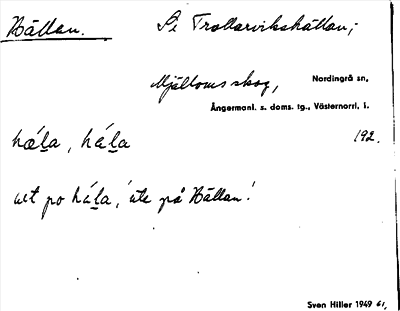 Hällan. Se Trollarvikshällan;
Mjälloms skog, Nordingrå sn,
Ångermanl. s. doms. tg., Västernorrl. l.
hæla, hála 192.
ut po hála, 'ute på Hällan'.
Sven Hiller 1949 61,